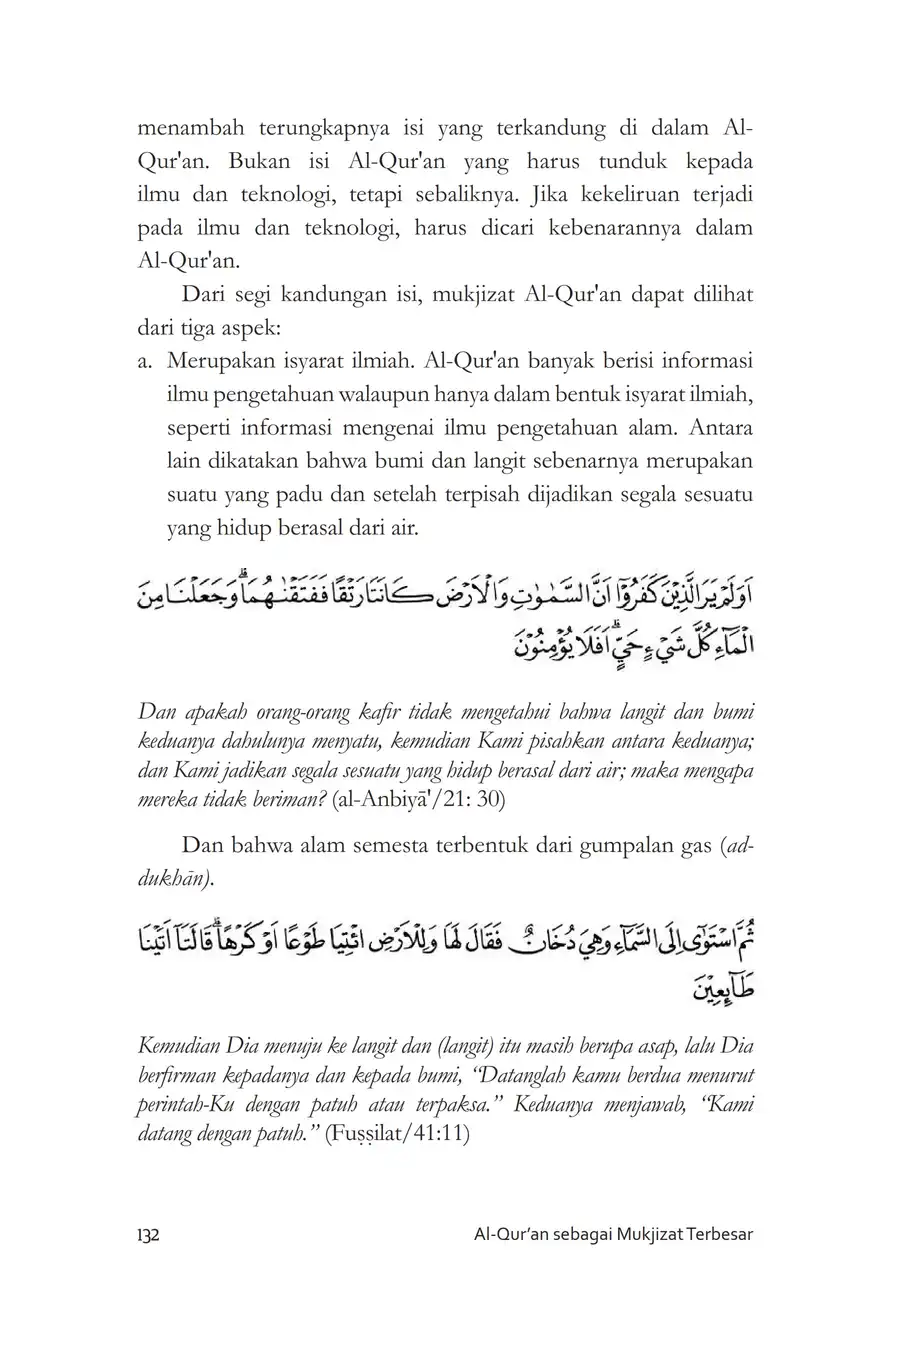 menambah terungkapnya isi yang terkandung di dalam Al-
Qur'an. Bukan isi Al-Qur'an yang harus tunduk kepada
ilmu dan teknologi, tetapi sebaliknya. Jika kekeliruan terjadi
pada ilmu dan teknologi, harus dicari kebenarannya dalam
Al-Qur'an.
Dari segi kandungan isi, mukjizat Al-Qur'an dapat dilihat
dari tiga aspek:
a. Merupakan isyarat ilmiah. Al-Qur'an banyak berisi informasi
ilmu pengetahuan walaupun hanya dalam bentuk isyarat ilmiah,
seperti informasi mengenai ilmu pengetahuan alam. Antara
lain dikatakan bahwa bumi dan langit sebenarnya merupakan
suatu yang padu dan setelah terpisah dijadikan segala sesuatu
yang hidup berasal dari air.
اَوَلَمْ يَرَ الَّذِيْنَ كَفَرُوْٓا اَنَّ السَّمٰوٰتِ وَالْاَرْضَ كَانَتَا رَتْقًا فَفَتَقْنٰهُمَاۗ وَجَعَلْنَا مِنَ
الْمَاۤءِ كُلَّ شَيْءٍ حَيٍّۗ اَفَلَا يُؤْمِنُوْنَ
Dan apakah orang-orang kafir tidak mengetahui bahwa langit dan bumi
keduanya dahulunya menyatu, kemudian Kami pisahkan antara keduanya;
dan Kami jadikan segala sesuatu yang hidup berasal dari air; maka mengapa
mereka tidak beriman? (al-Anbiyā'/21: 30)
Dan bahwa alam semesta terbentuk dari gumpalan gas (ad-
dukhān).
ثُمَّ اسْتَوٰٓى اِلَى السَّمَاۤءِ وَهِيَ دُخَانٌ فَقَالَ لَهَا وَلِلْاَرْضِ ائْتِيَا طَوْعًا اَوْ كَرْهًاۗ قَالَتَآ اَتَيْنَا
طَاۤىِٕعِيْنَ
Kemudian Dia menuju ke langit dan (langit) itu masih berupa asap, lalu Dia
berfirman kepadanya dan kepada bumi, “Datanglah kamu berdua menurut
perintah-Ku dengan patuh atau terpaksa.” Keduanya menjawab, “Kami
datang dengan patuh.” (Fuṣṣilat/41:11)
132 Al-Qur’an sebagai Mukjizat Terbesar